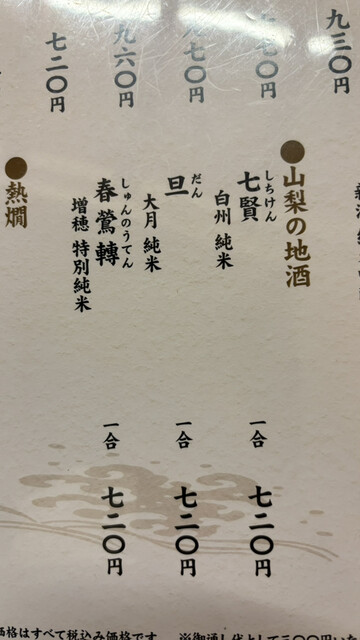 九三〇円
七〇円
七〇円
九六〇円
七二〇円
●山梨の地酒
しちけん
七賢
白州 純米
一合 七二〇円
だん
旦
大月 純米
一合 七二〇円
しゅんのうてん
春鶯囀
増穂 特別純米
一合 七二〇円
●熱燗
価格はすべて税込み価格です
※御通し代として三〇〇円いた